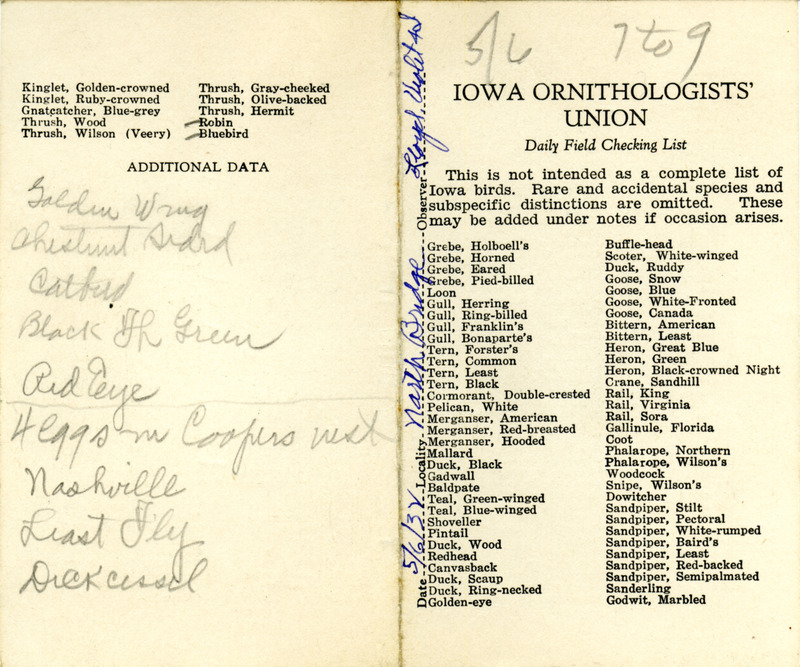 Kinglet, Golden-crowned
Kinglet, Ruby-crowned
Gnatcatcher, Blue-grey
Thrush, Wood
Thrush, Wilson (Veery)
Thrush, Gray-cheeked
Thrush, Olive-backed
Thrush, Hermit
Robin
Bluebird
ADDITIONAL DATA
Golden Wing
Chestnut Sided
Catbird
Black Th Green
Red Eye
4 eggs in Coopers nest
Nashville
Least Fly
Dickcissel
5/6 7 to 9
IOWA ORNITHOLOGISTS'
UNION
Daily Field Checking List
This is not intended as a complete list of
Iowa birds. Rare and accidental species and
subspecific distinctions are omitted. These
may be added under notes if occasion arises.
Date 5/6/32 Locality North Bridge Observer Lloyd, Violet and
Grebe, Holboell's
Grebe, Horned
Grebe, Eared
Grebe, Pied-billed
Loon
Gull, Herring
Gull, Ring-billed
Gull, Franklin's
Gull, Bonaparte's
Tern, Forster's
Tern, Common
Tern, Least
Tern, Black
Cormorant, Double-crested
Pelican, White
Merganser, American
Merganser, Red-breasted
Merganser, Hooded
Mallard
Duck, Black
Gadwall
Baldpate
Teal, Green-winged
Teal, Blue-winged
Shoveller
Pintail
Duck, Wood
Redhead
Canvasback
Duck, Scaup
Duck, Ring-necked
Golden-eye
Buffle-head
Scoter, White-winged
Duck, Ruddy
Goose, Snow
Goose, Blue
Goose, White-Fronted
Goose, Canada
Bittern, American
Bittern, Least
Heron, Great Blue
Heron, Green
Heron, Black-crowned Night
Crane, Sandhill
Rail, King
Rail, Virginia
Rail, Sora
Gallinule, Florida
Coot
Phalarope, Northern
Phalarope, Wilson's
Woodcock
Snipe, Wilson's
Dowitcher
Sandpiper, Stilt
Sandpiper, Pectoral
Sandpiper, White-rumped
Sandpiper, Baird's
Sandpiper, Least
Sandpiper, Red-backed
Sandpiper, Semipalmated
Sanderling
Godwit, Marbled